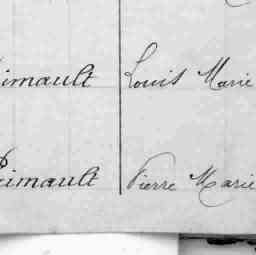 Rimault Louis Marie
Rimault Pierre Marie